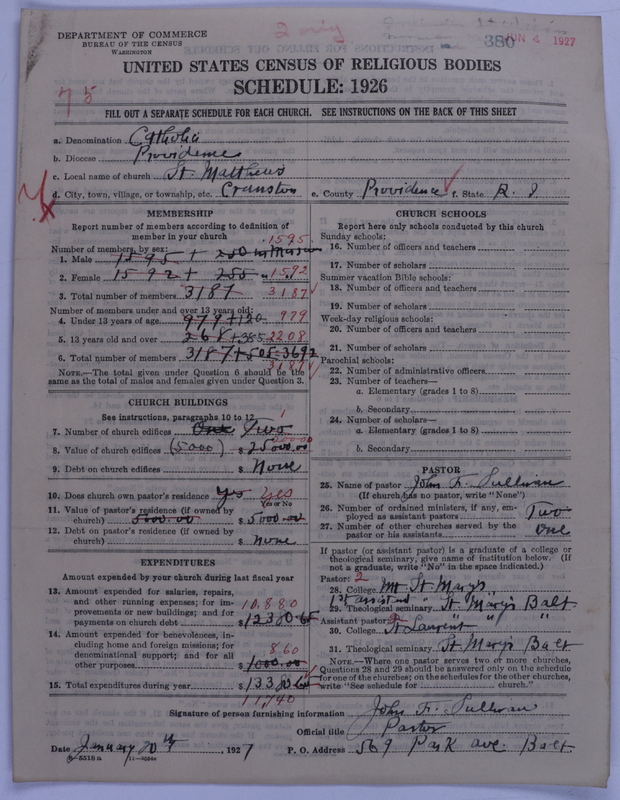 DEPARTMENT OF COMMERCE
BUREAU OF THE CENSUS
WASHINGTON
2 only
380
JUN 4 1927
UNITED STATES CENSUS OF RELIGIOUS BODIES
SCHEDULE: 1926
75
FILL OUT A SEPARATE SCHEDULE FOR EACH CHURCH. SEE INSTRUCTIONS ON THE BACK OF THIS SHEET
a. Denomination Catholic
b. Diocese Providence
c. Local name of church St. Matthews
d. City, town, village, or township, etc. Cranston e. County Providence f. State R. I.
MEMBERSHIP
Report number of members according to definition of member in your church
Number of members by sex:
1. Male 1595 + 250 1595
2. Female 1592 + 255 1592
3. Total number of members 3187 3187
Number of members under and over 13 years old:
4. Under 13 years of age 979 + 120 979
5. 13 years old and over 2208
6. Total number of members 3187 + 505 - 3692
3187
NOTE.—The total given under Question 6 should be the same as the total of males and females given under Question 3.
CHURCH BUILDINGS
See instructions, paragraphs 10 to 12
7. Number of church edifices One Two 1
8. Value of church edifices (5000) $ 25000.00
9. Debt on church edifices $ None
10. Does church own pastor's residence yes Yes
Yes or No
11. Value of pastor's residence (if owned by church) 5000.00 $ 5000.00
12. Debt on pastor's residence (if owned by church) $ None
EXPENDITURES
Amount expended by your church during last fiscal year
13. Amount expended for salaries, repairs, and other running expenses; for improvements or new buildings; and for payments on church debt $ 12380.65
10,880
14. Amount expended for benevolences, including home and foreign missions; for denominational support; and for all other purposes $ 1000.00
860
15. Total expenditures during year $ 13380.65
11,740
CHURCH SCHOOLS
Report here only schools conducted by this church
Sunday schools:
16. Number of officers and teachers
17. Number of scholars
Summer vacation Bible schools:
18. Number of officers and teachers
19. Number of scholars
Week-day religious schools:
20. Number of officers and teachers
21. Number of scholars
Parochial schools:
22. Number of administrative officers
23. Number of teachers—
a. Elementary (grades 1 to 8)
b. Secondary
24. Number of scholars—
a. Elementary (grades 1 to 8)
b. Secondary
PASTOR
25. Name of pastor John F. Sullivan
(If church has no pastor, write "None")
26. Number of ordained ministers, if any, employed as assistant pastors Two
27. Number of other churches served by the pastor or his assistants One
If pastor (or assistant pastor) is a graduate of a college or theological seminary, give name of institution below. (If not a graduate, write "No" in the space indicated.)
Pastor: 2
28. College Mt St Marys
1st assistant " " "
29. Theological seminary St Marys Balt
Assistant pastor:
30. College St Laurent " "
31. Theological seminary St Marys Balt
NOTE.—Where one pastor serves two or more churches, Questions 28 and 29 should be answered only on the schedule for one of the churches; on the schedules for the other churches, write "See schedule for church."
Signature of person furnishing information John F. Sullivan
Official title Pastor
Date January 20th, 1927 P. O. Address 569 Park ave. Balt
8—5518 a 11—9584a